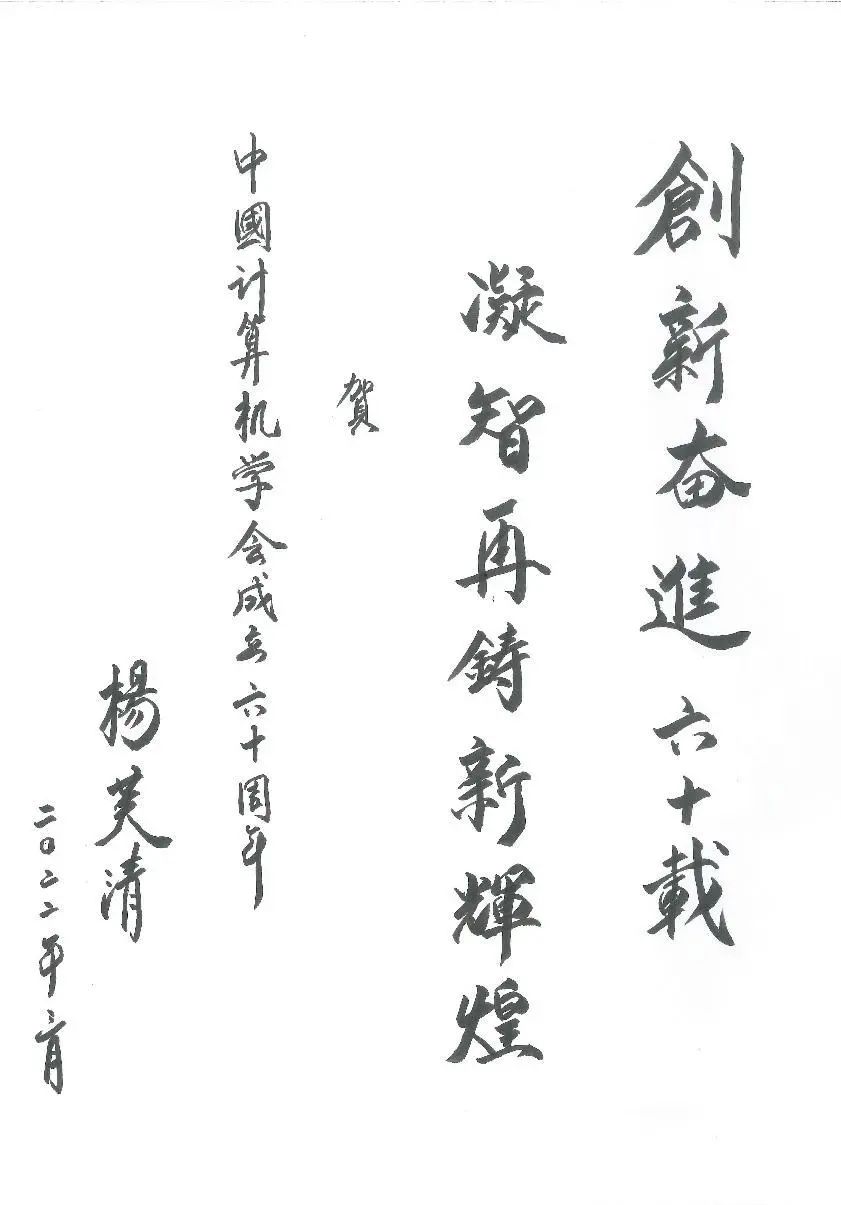 創新奋進六十載
凝智再鋳新輝煌
賀
中國计算机学会成立六十周年
楊芙清
二〇二二年六月